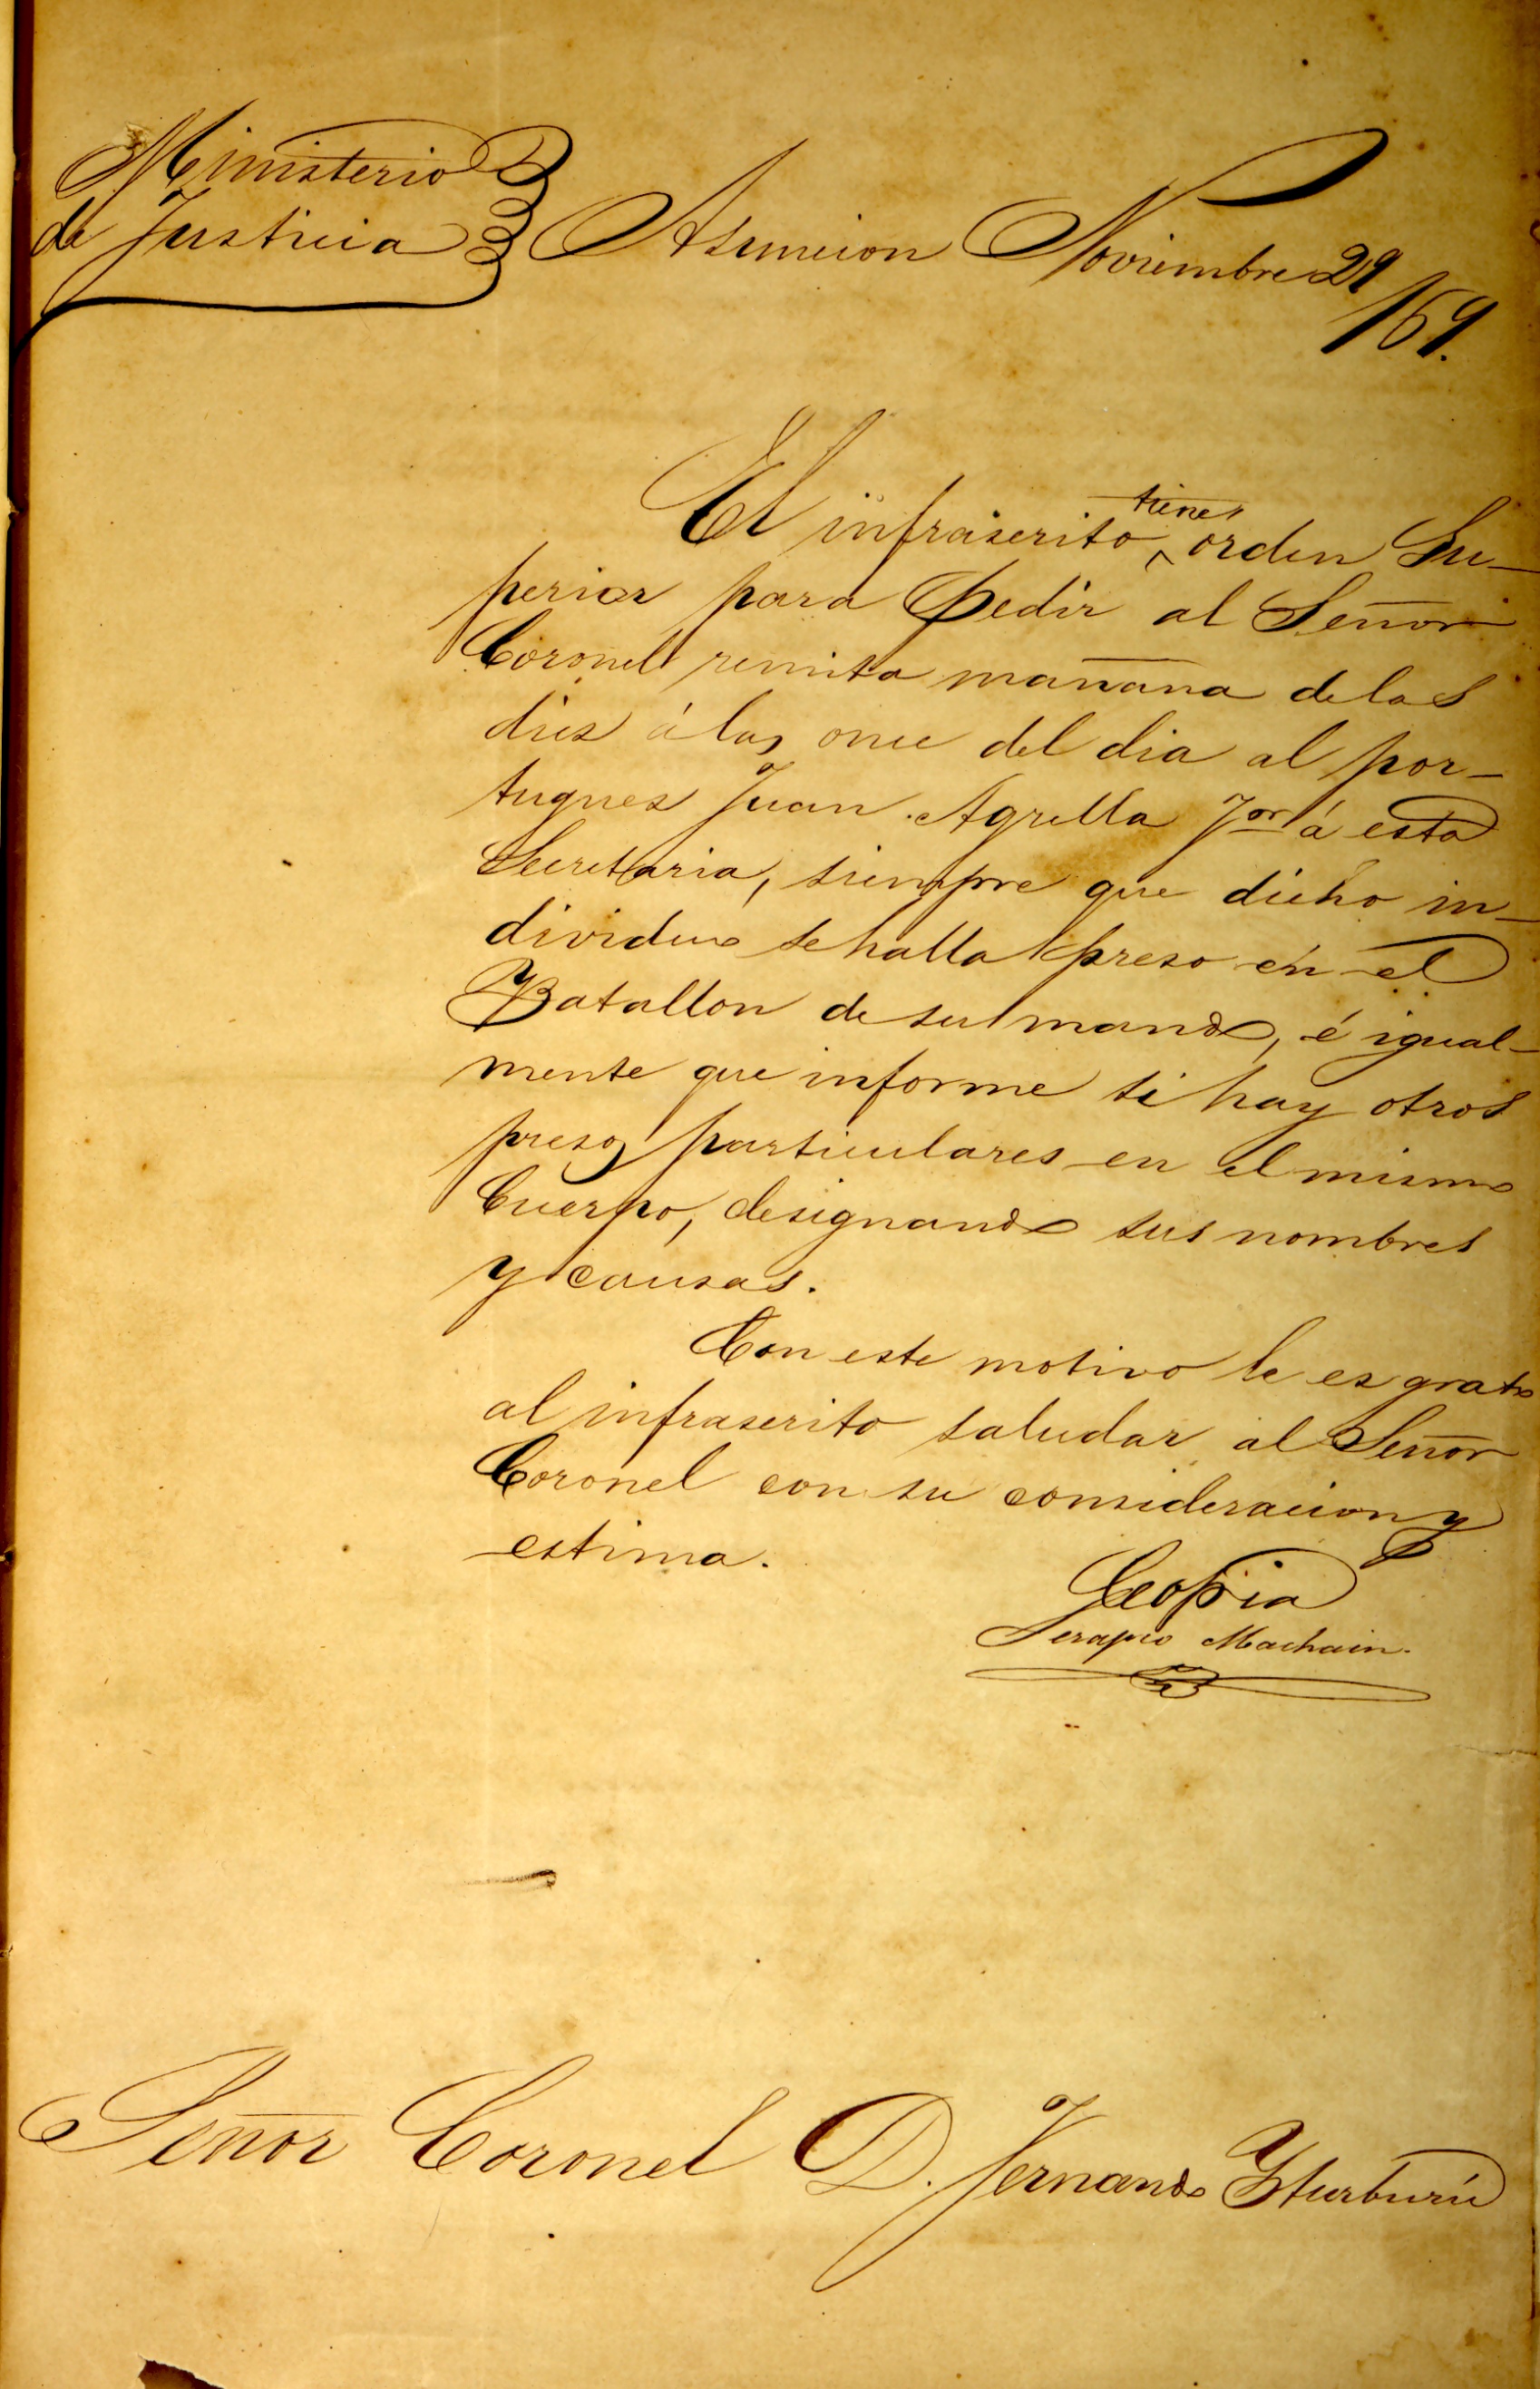 Ministerio
de Justicia
Asuncion Noviembre 29
/69.
El infrascrito tiene orden Su-
perior para pedir al Señor
Coronel remita mañana de las
dies á las once del dia al por-
tugues Juan Agrella Jor á esta
Secretaria, siempre que dicho in-
dividuo se halla preso en el
Batallon de su mando, é igual-
mente que informe si hay otros
presos particulares en el mismo
Cuerpo, designando sus nombres
y causas.
Con este motivo le es grato
al infrascrito saludar al Señor
Coronel con su consideracion y
estima.
Copia
Serapio Machain.
Señor Coronel D. Fernando Yturburú